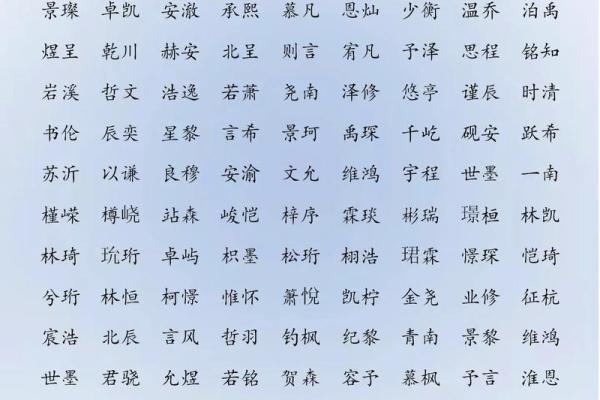 景璨 卓凯 安澈 承熙 慕凡 恩灿 少衡 温乔 泊禹
煜呈 乾川 赫安 北呈 则言 宥凡 予泽 思程 铭知
岩溪 哲文 浩逸 若萧 尧南 泽修 悠亭 谨辰 时清
书伦 辰奕 星黎 言希 景珂 禹琛 千屹 砚安 跃希
苏沂 以谦 良穆 安渝 文允 维鸿 宇程 世墨 一南
槿嵘 樽峣 站森 峻恺 梓序 霖琰 彬瑞 璟桓 林凯
林琦 玧珩 卓屿 枳墨 松珩 栩浩 珺霖 憬琛 恺琦
兮珩 林恒 柯憬 惟怀 箫悅 凯柠 金尧 业修 征杭
宸浩 北辰 言风 哲羽 钓枫 纪黎 青南 景黎 维鸿
世墨 君骁 允煜 若铭 贺森 容予 慕枫 予言 淮恩